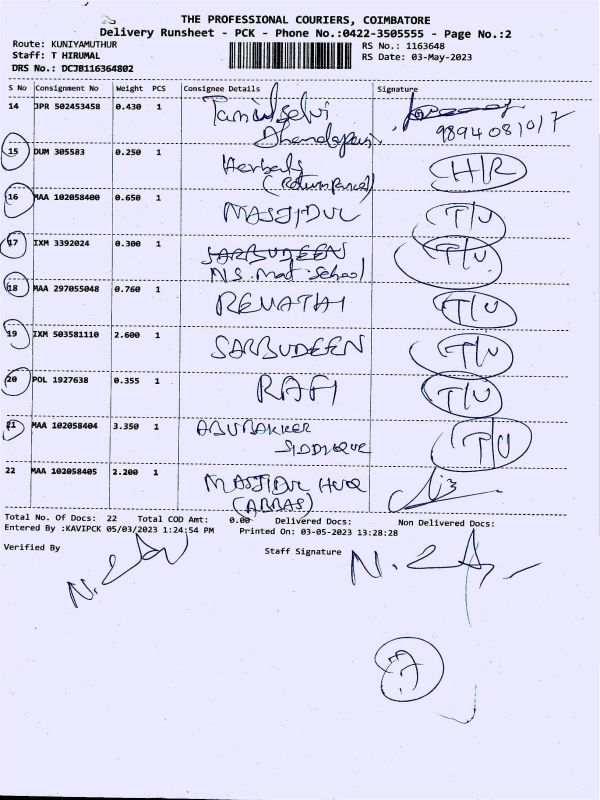 THE PROFESSIONAL COURIERS, COIMBATORE
Delivery Runsheet - PCK - Phone No.:0422-3505555 - Page No.:2
Route: KUNIYAMUTHUR
RS No.: 1163648
Staff: T HIRUMAL
RS Date: 03-May-2023
DRS No.: DCJB116364802
S No Consignment No Weight PCS Consignee Details Signature
14 JPR 502453458 0.430 1 Tamilselvi
Dhandapani 9894081017
15 DUM 305583 0.250 1 Herbals H/R
(Return Parcel)
16 MAA 102058400 0.650 1 MASJIDUL T/U
17 IXM 3392024 0.300 1 SARBUDEEN T/U
N.S. Mat. School
18 MAA 297055048 0.760 1 REVATHI T/U
19 IXM 503581110 2.600 1 SARBUDEEN T/U
20 POL 1927638 0.355 1 RAFI T/U
21 MAA 102058404 3.350 1 ABUBAKKER T/U
SIDDIQUE
22 MAA 102058405 2.200 1 MASJIDUL HUQ
(ABBAS)
Total No. Of Docs: 22 Total COD Amt: 0.00 Delivered Docs: Non Delivered Docs:
Entered By :KAVIPCK 05/03/2023 1:24:54 PM Printed On: 03-05-2023 13:28:28
Verified By Staff Signature